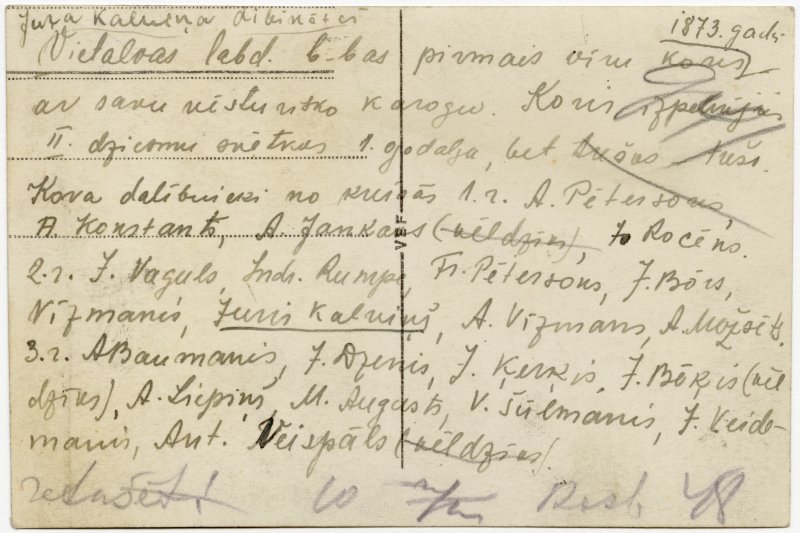 Jura Kalniņa dibinātais
1873. gada
Vietalvas labd. b-bas pirmais vīru koris
ar savu vēsturisko karogu. Koris izpelnījies
II. dziesmu svētkos 1. godalgu, bet
Kora dalībnieki no kreisās 1.r. A. Pētersons,
A. Konstants, A. Jankavs (vēl dzīvs), Jo Rocēns.
2.r. J. Vaguls, Indr. Rumpe, Fr. Pētersons, J. Bērs,
Vīzmanis, Juris Kalniņš, A. Vīzmans, A.
3.r. A Baumanis, J. Dzenis, J. Ķerķis, J. Bōķis (vēl
dzīvs), A. Liepiņš, M. Augusts, V. Šūlmanis, J. Veide-
manis, Ant. Veispāls (vēl dzīvs).
VEF
retušēt! 10 48